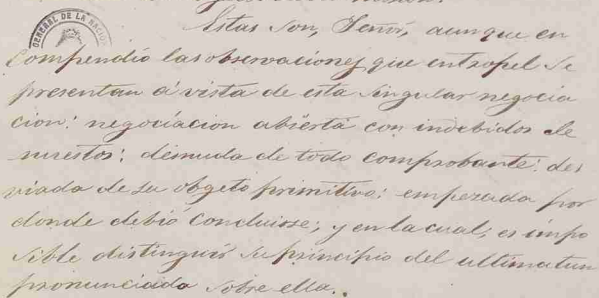 GENERAL DE LA NACION
Estas son, Señor, aunque en
compendio las observaciones que entropel se
presentan á vista de esta singular negocia
cion: negociacion abierta con indebidos de
nuestos: desnuda de todo comprobante: des
viada de su obgeto primitivo: empezada por
donde debió concluirse; y en la cual, es impo
sible distinguir su principio del ultimatun
pronunciado sobre ella.